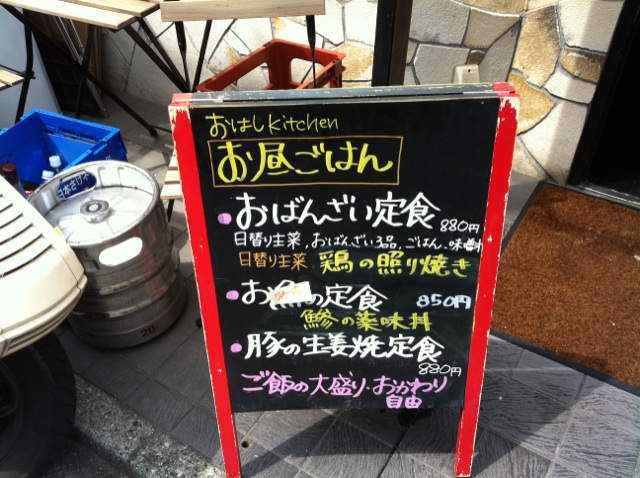 おはしkitchen
お昼ごはん
おばんざい定食 880円
日替り主菜、おばんざい3品、ごはん、味噌汁
日替り主菜 鶏の照り焼き
お魚の定食 850円
鯵の薬味丼
豚の生姜焼定食
880円
ご飯の大盛り・おかわり
自由